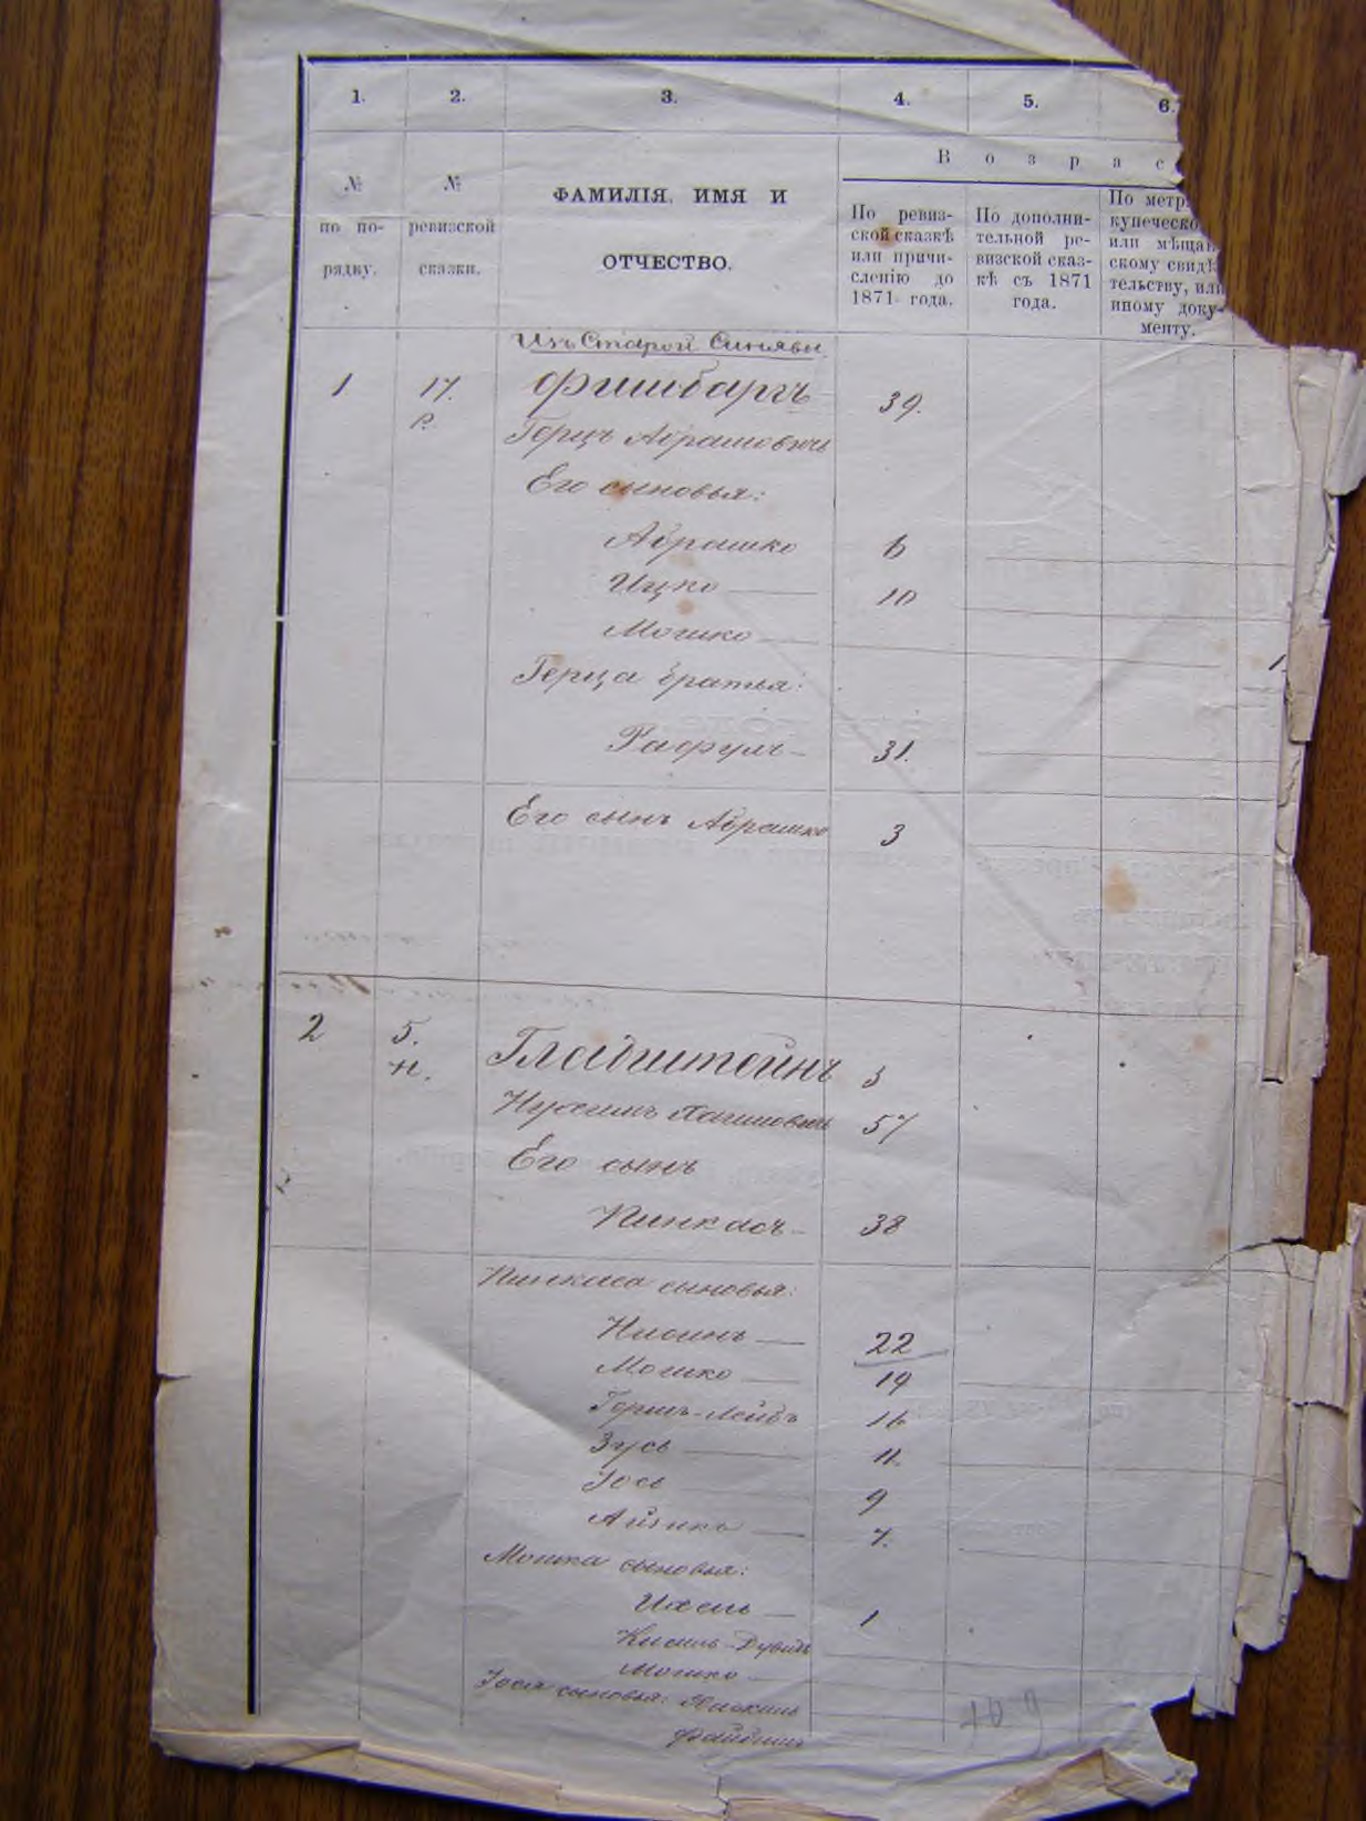 1. 2. 3. 4. 5. 6.
В о з р а с
№ по по- рядку.
№ ревизской сказки.
ФАМИЛІЯ, ИМЯ И
ОТЧЕСТВО.
По ревиз-
ской сказкѣ
или причи-
сленію до
1871 года.
По дополни-
тельной ре-
визской сказ-
кѣ съ 1871
года.
По метр
купеческо
или мѣщан
скому свидѣ
тельству, или
иному доку-
менту.
Изъ Старой Синявы
1 17. Фишбаргъ 39.
Р. Герцъ Абрамовичъ
Его сыновья:
Абрашко 6
Ицко 10
Мошко 1
Герца братья:
Рафулъ 31.
Его сынъ Абрашко 3
2 5. Гладштейнъ
Н. Нухимъ 57
Его сынъ
Пинкасъ 38
Пинкаса сыновья:
Нисинъ 22
Мошко 19
Гершъ-Лейбъ 16
Зусь 11.
Іось 9
Айзикъ 7.
Мошка сыновья:
Ихель 1
Кисиль-Дувидъ
Мошко
Іося сыновья:
Файвишъ